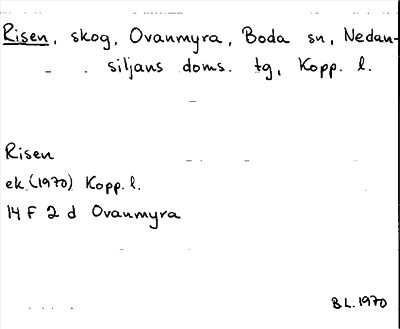 Risen, skog, Ovanmyra, Boda sn, Nedan-
siljans doms. tg, Kopp. l.
Risen
ek. (1970) Kopp. l.
14 F 2 d Ovanmyra
B L. 1970